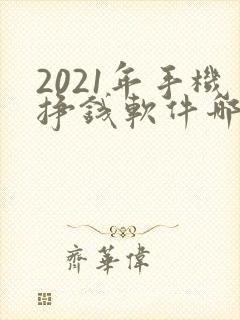 2021年手機
掙錢軟件哪
齊華偉